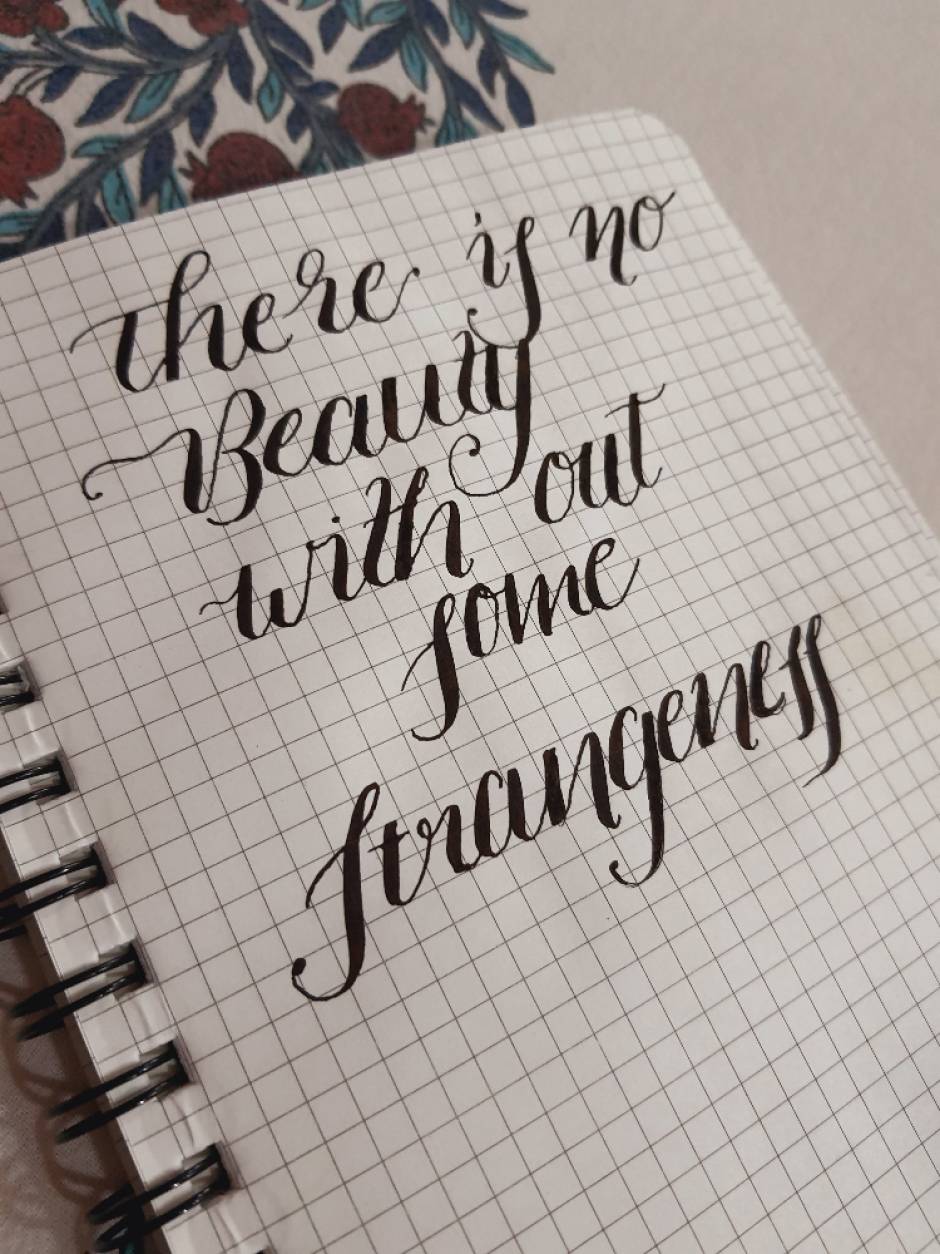 There is no
Beauty
with out
some
strangeness